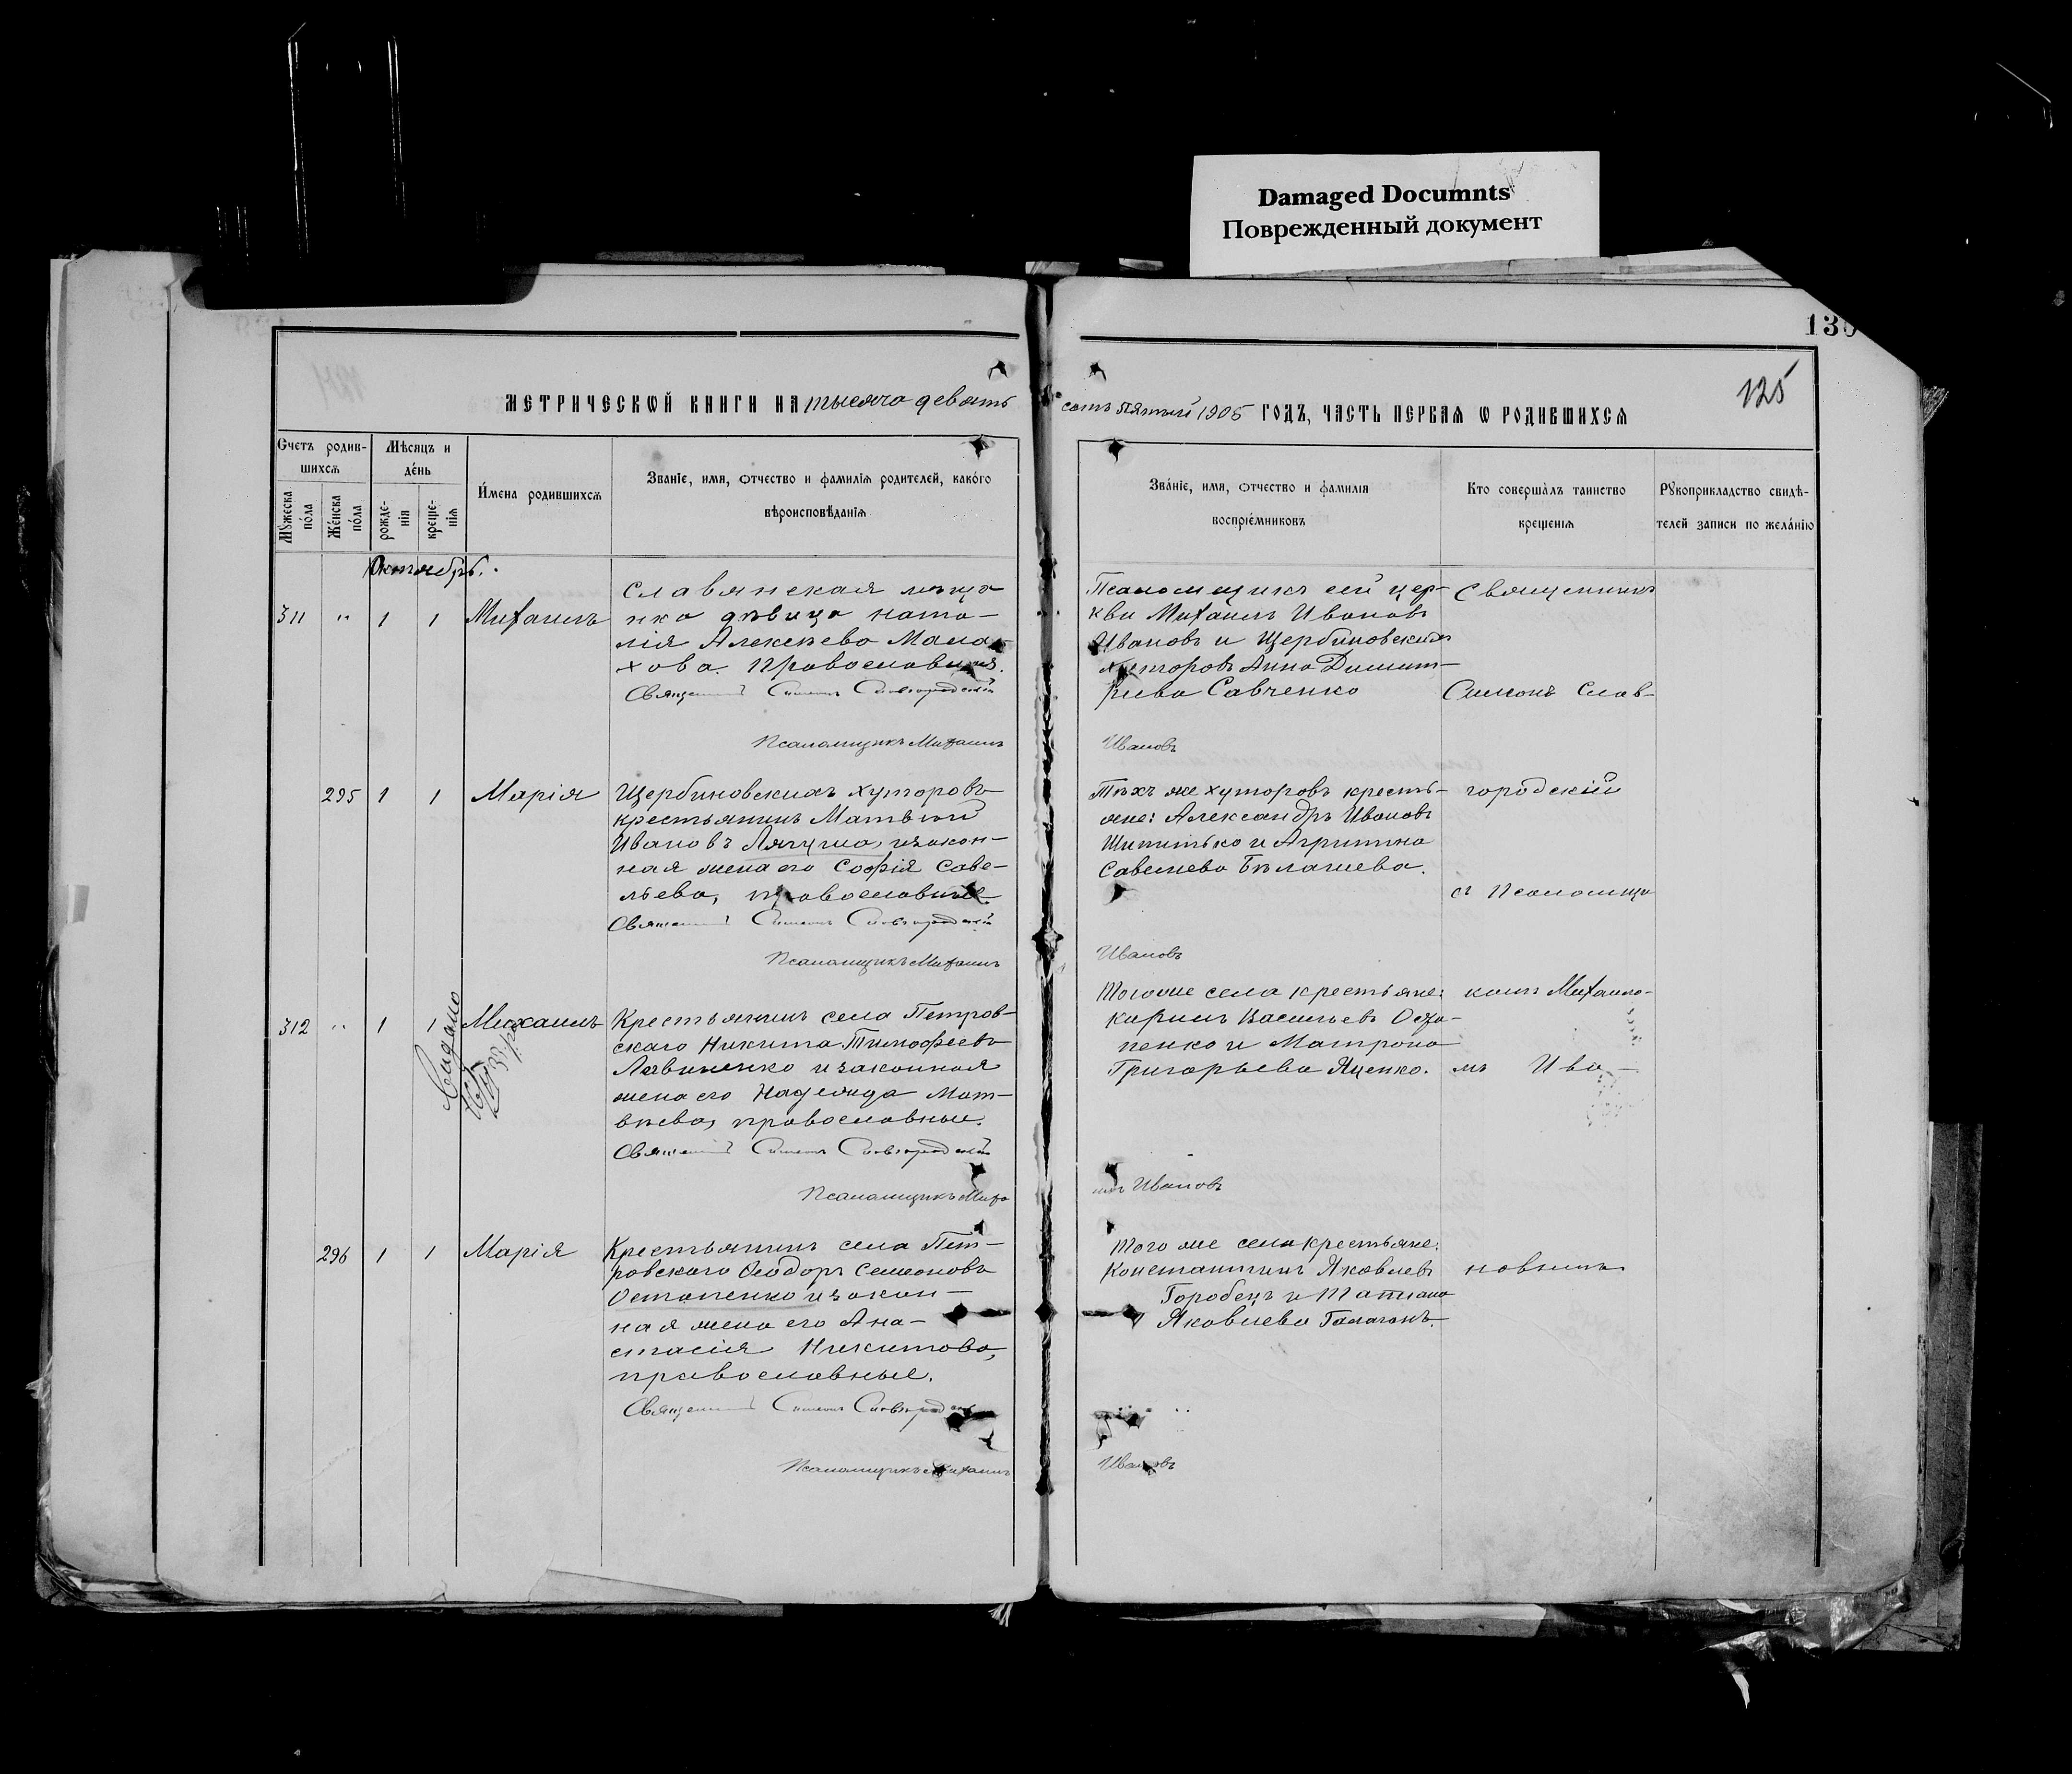 Damaged Documnts
Поврежденный документ
130
125
МЕТРИЧЕСКОЙ КНИГИ НА тысяча девять
сотъ пятый 1905 ГОДЪ, ЧАСТЬ ПЕРВАЯ Ѡ РОДИВШИХСЯ
Счетъ родив-
шихсѧ
Мѣсяцъ и
де́нь
Мꙋжеска
по́ла
Же́нска
по́ла
рожде-
нія
креще-
нія
И́мена родившихсѧ
Званіе, имя, ѻтчество и фамилія родителей, како́го
вѣроисповѣ́данія
Зва́ніе, имя, ѻтчество и фамилія
воспріе́мниковъ
Кто соверша́лъ таинство
крещенія
Рꙋкоприкладство свидѣ-
телей записи по жела́нію
Октябрь.
311 " 1 1 Михаилъ
Славянская мѣща
нка дѣвица Ната-
лія Алексѣева Мала
хова. Православная.
Священникъ Симонъ Славгородскій
Псаломщикъ Михаилъ
Псаломщикъ сей цер-
кви Михаилъ Ивановъ
Ивановъ и Щербиновскихъ
хуторовъ Анна Димит-
ріева Савченко
Ивановъ
Священникъ
Симонъ Слав-
295 1 1 Марія
Щербиновскихъ хуторовъ
крестьянинъ Матвѣй
Ивановъ Лягуша, и закон-
ная жена его Софія Саве-
льева, православные.
Священникъ Симонъ Славгородскій
Псаломщикъ Михаилъ
Тѣхъ же хуторовъ кресть-
яне: Александръ Ивановъ
Шипитько и Агрипина
Савельева Бѣлашева.
Ивановъ
городскій
съ Псаломщи
312 " 1 1 Михаилъ
Крестьянинъ села Петров-
скаго Никита Тимофеевъ
Литвиненко и законная
жена его Надежда Мат-
вѣева, православные.
Священникъ Симонъ Славгородскій
Псаломщикъ Миха
Того же села крестьяне:
Кириллъ Васильевъ Оста-
пенко и Матрона
Григорьева Яценко.
илъ Ивановъ
комъ Михаило-
мъ Ива-
Выдано
296 1 1 Марія
Крестьянинъ села Пет-
ровскаго Ѳеодоръ Семеоновъ
Остапенко и закон-
ная жена его Ана-
стасія Никитова,
православные.
Священникъ Симонъ Славгородскій
Псаломщикъ Михаилъ
Того же села крестьяне:
Константинъ Яковлевъ
Горобецъ и Татіана
Яковлева Галаганъ.
Ивановъ
новымъ